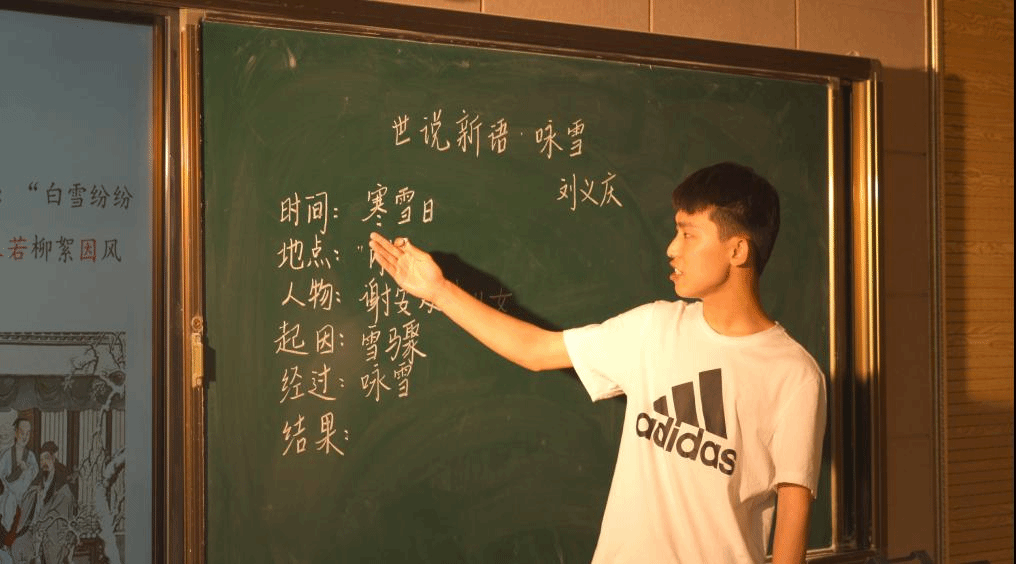 ：“白雪纷纷
若柳絮因风
世说新语·咏雪
刘义庆
时间：寒雪日
地点：
人物：谢安
起因：雪骤
经过：咏雪
结果：
adidas